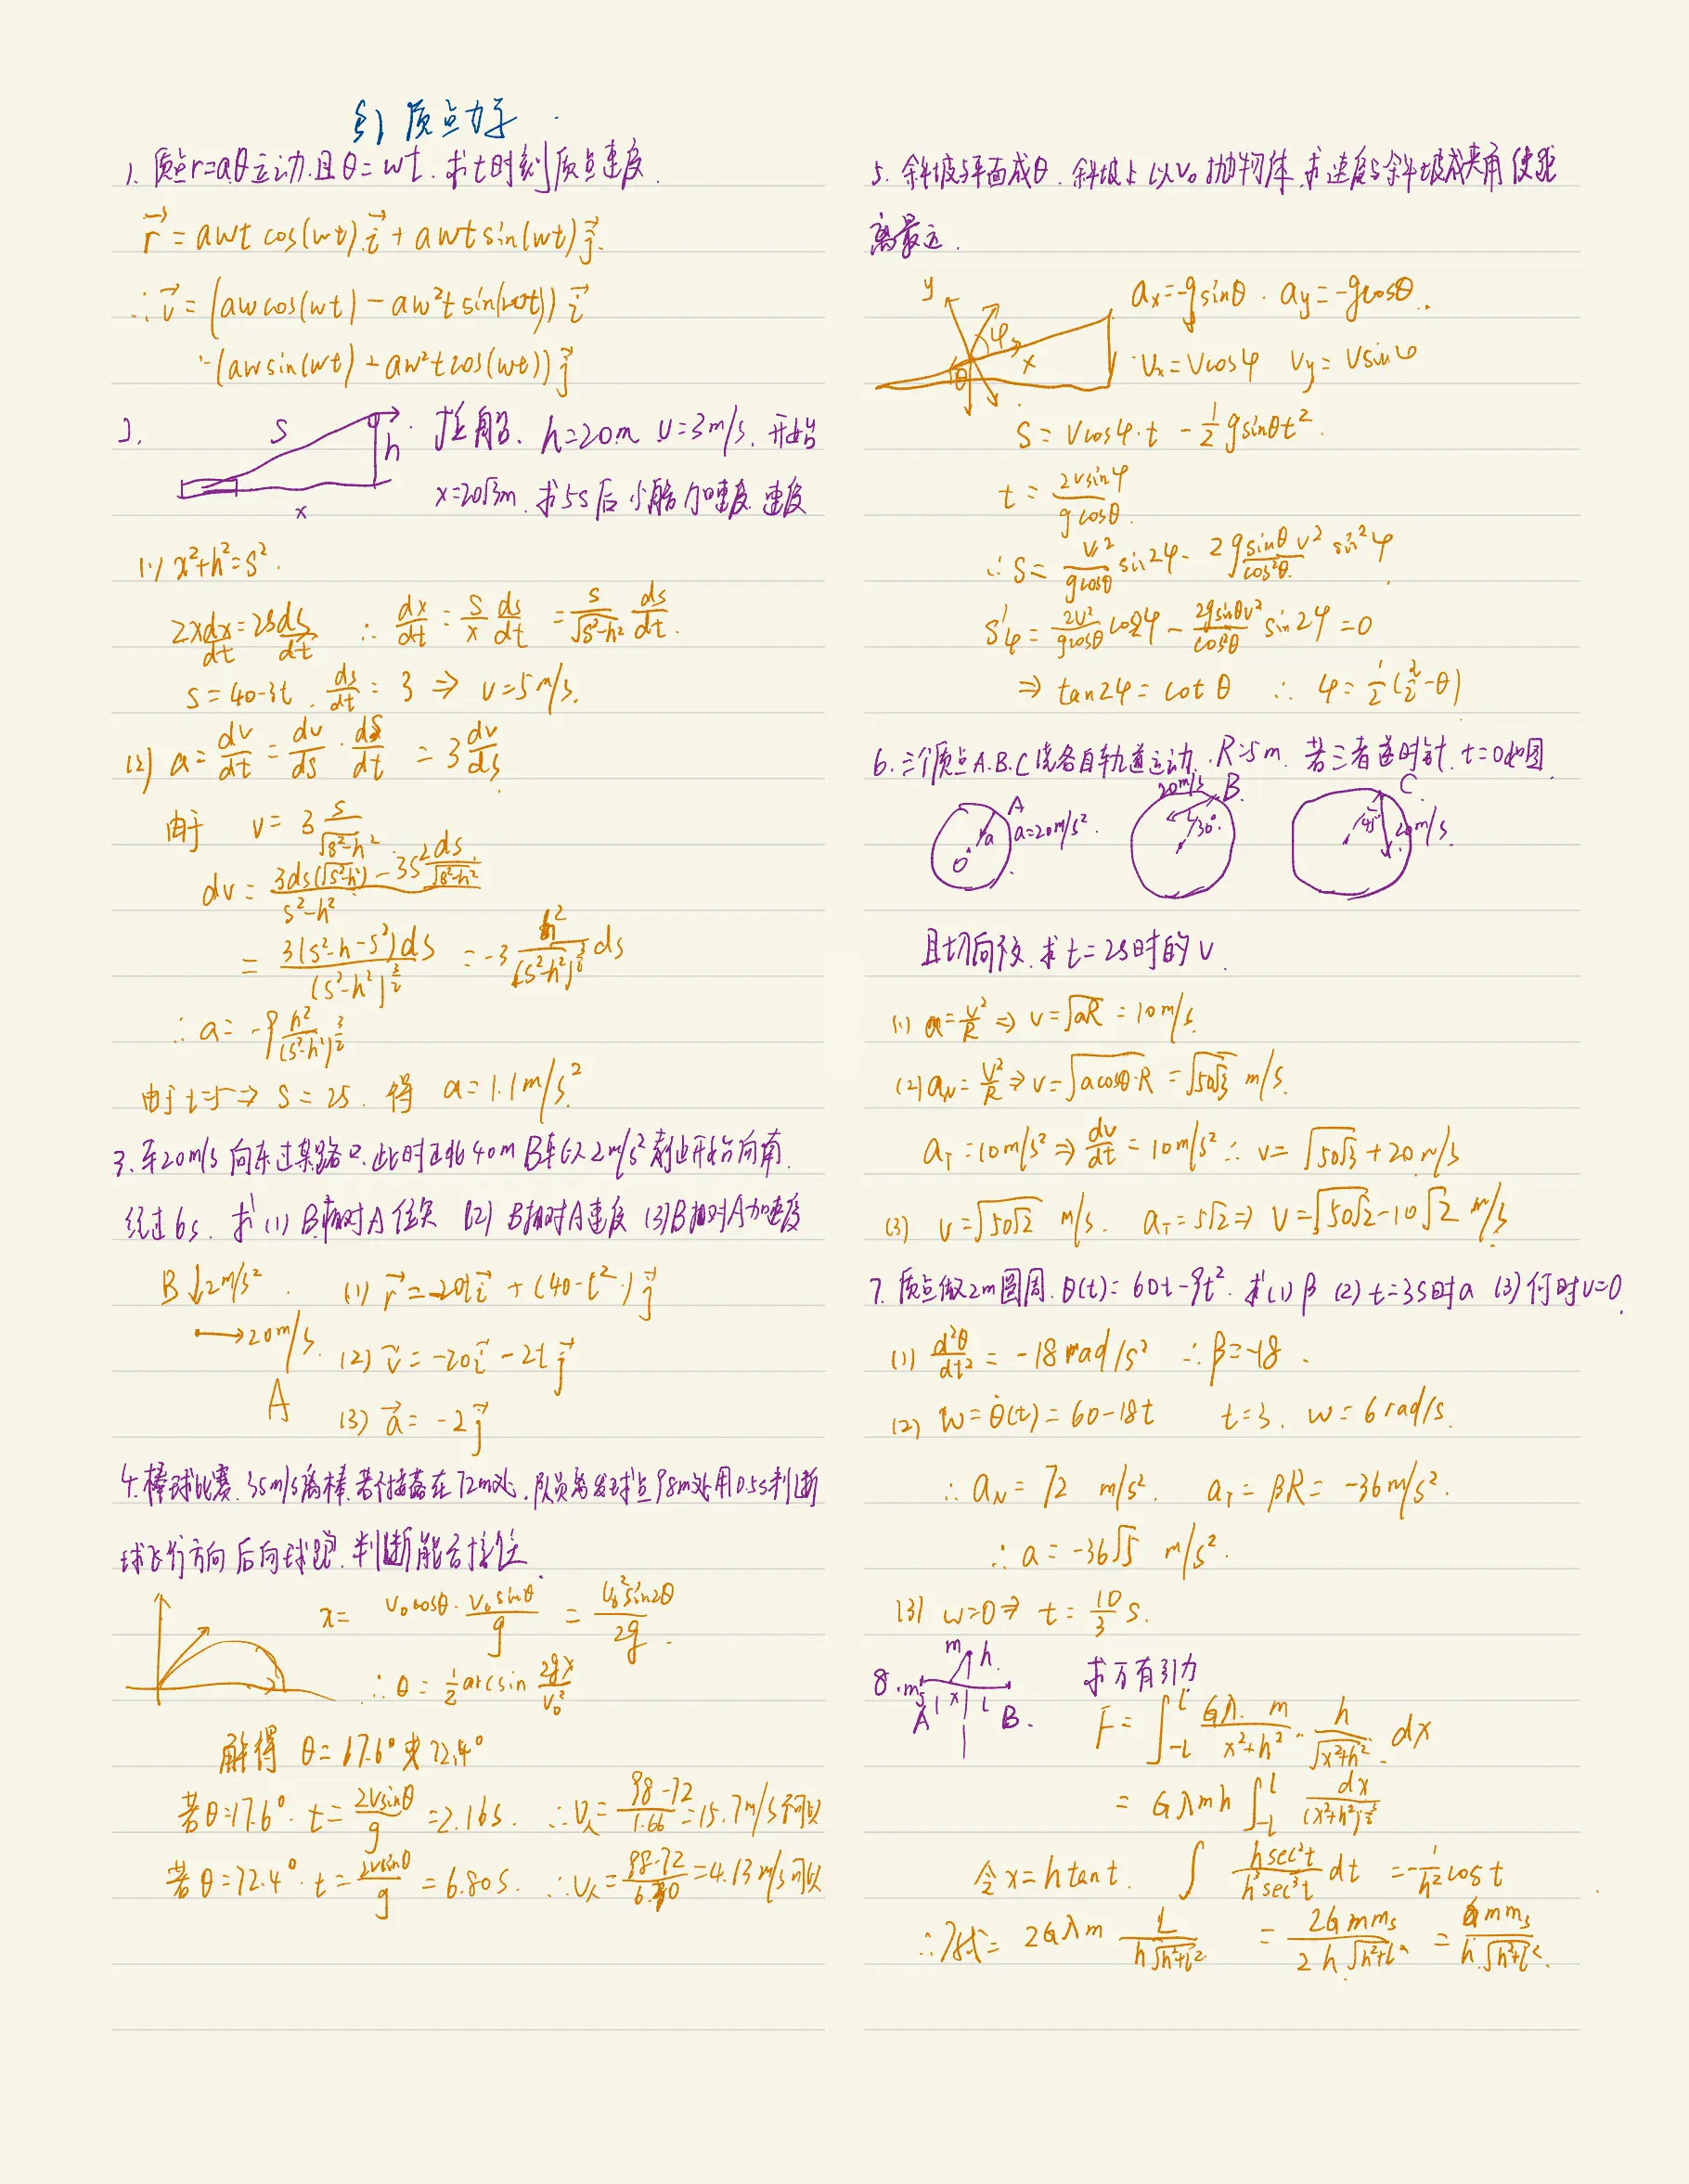 §1 质点力学
1. 质点r=aθ运动.且θ=wt. 求t时刻质点速度.
r⃗ = awt cos(wt) i⃗ + awt sin(wt) j⃗.
∴ v⃗ = (aw cos(wt) - aw²t sin(wt)) i⃗
+(aw sin(wt) + aw²t cos(wt)) j⃗
2. S h x 拉船. h=20m v=3m/s. 开始
x=20√3m. 求5s后小船加速度.速度
(1) x²+h²=s².
2x dx/dt = 2s ds/dt ∴ dx/dt = s/x ds/dt = s/√(s²-h²) ds/dt.
s=40-3t. ds/dt = 3 ⇒ v=5m/s.
(2) a = dv/dt = dv/ds · ds/dt = 3 dv/ds
由于 v = 3 s/√(s²-h²)
dv = (3ds(√(s²-h²)) - 3s² ds/√(s²-h²))/(s²-h²)
= 3(s²-h-s²)ds/(s²-h²)^(3/2) = -3 h²/(s²-h²)^(3/2) ds
∴ a = -9 h²/(s²-h²)^(3/2)
由于 t=5 ⇒ s = 25. 得 a=1.1m/s².
3. 车20m/s向东过某路口.此时正北40m B车以2m/s²静止开始向南.
经过6s. 求(1) B相对A位矢 (2) B相对A速度 (3)B相对A加速度
B ↓2m/s². (1) r⃗ = -20t i⃗ + (40-t²) j⃗
→20m/s. (2) v⃗ = -20 i⃗ - 2t j⃗
A (3) a⃗ = -2 j⃗
4. 棒球比赛. 35m/s离棒.若不接落在72m处. 队员离发球点98m处用0.5s判断
球飞行方向后向球跑. 判断能否接住.
x = v₀cosθ · v₀sinθ/g = v₀²sin2θ/2g.
∴ θ = ½ arcsin 2gx/v₀²
解得 θ=17.6°或72.4°
若θ=17.6°. t = 2vsinθ/g = 2.16s. ∴ v人 = (98-72)/1.66 = 15.7m/s不可以
若θ=72.4°. t = 2vsinθ/g = 6.80s. ∴ v人 = (98-72)/6.30 = 4.13m/s可以
5. 斜坡与平面成θ. 斜坡上以v₀抛物体.求速度与斜坡成夹角使距
离最远.
y φ x θ ax=-gsinθ. ay=-gcosθ.
vx=vcosφ vy=vsinφ
S = vcosφ·t - ½gsinθt².
t = 2vsinφ/gcosθ.
∴ S = v²/gcosθ sin2φ - 2gsinθv²/cos²θ sin²φ
S'φ = 2v²/gcosθ cos2φ - 2gsinθv²/cos²θ sin2φ = 0
⇒ tan2φ = cotθ ∴ φ = ½(π/2-θ)
6. 三个质点A.B.C绕各自轨道运动. R=5m. 若三者逆时针. t=0如图.
A a a=20m/s². O 20m/s² B 30°. C 45° 20m/s².
且切向不变. 求t=2s时的v
(1) a = v²/R ⇒ v=√aR = 10m/s.
(2) aN = v²/R ⇒ v=√(acosθ·R) = √(50√3) m/s.
aτ = 10m/s² ⇒ dv/dt = 10m/s² ∴ v = √(50√3) + 20m/s
(3) v=√(50√2) m/s. aτ=5√2 ⇒ v=√(50√2) - 10√2 m/s.
7. 质点做2m圆周. θ(t)=60t-9t². 求(1)β (2) t=3s时a (3)何时v=0.
(1) d²θ/dt² = -18rad/s² ∴ β=-18.
(2) w=θ̇(t)=60-18t t=3. w=6rad/s.
∴ aN = 72 m/s². aτ = βR = -36m/s².
∴ a = -36√5 m/s².
(3) w=0 ⇒ t = 10/3 s.
8. ms A l x l B. m h. 求万有引力
F = ∫_{-l}^{l} Gλ·m/(x²+h²) · h/√(x²+h²) dx
= Gλmh ∫_{-l}^{l} dx/(x²+h²)^(3/2)
令x=htant. ∫ hsec²t/h³sec³t dt = -1/h² cost
∴ 原式 = 2Gλm L/h√(h²+l²) = 2Gmms/2h√(h²+l²) = Gmms/h√(h²+l²).